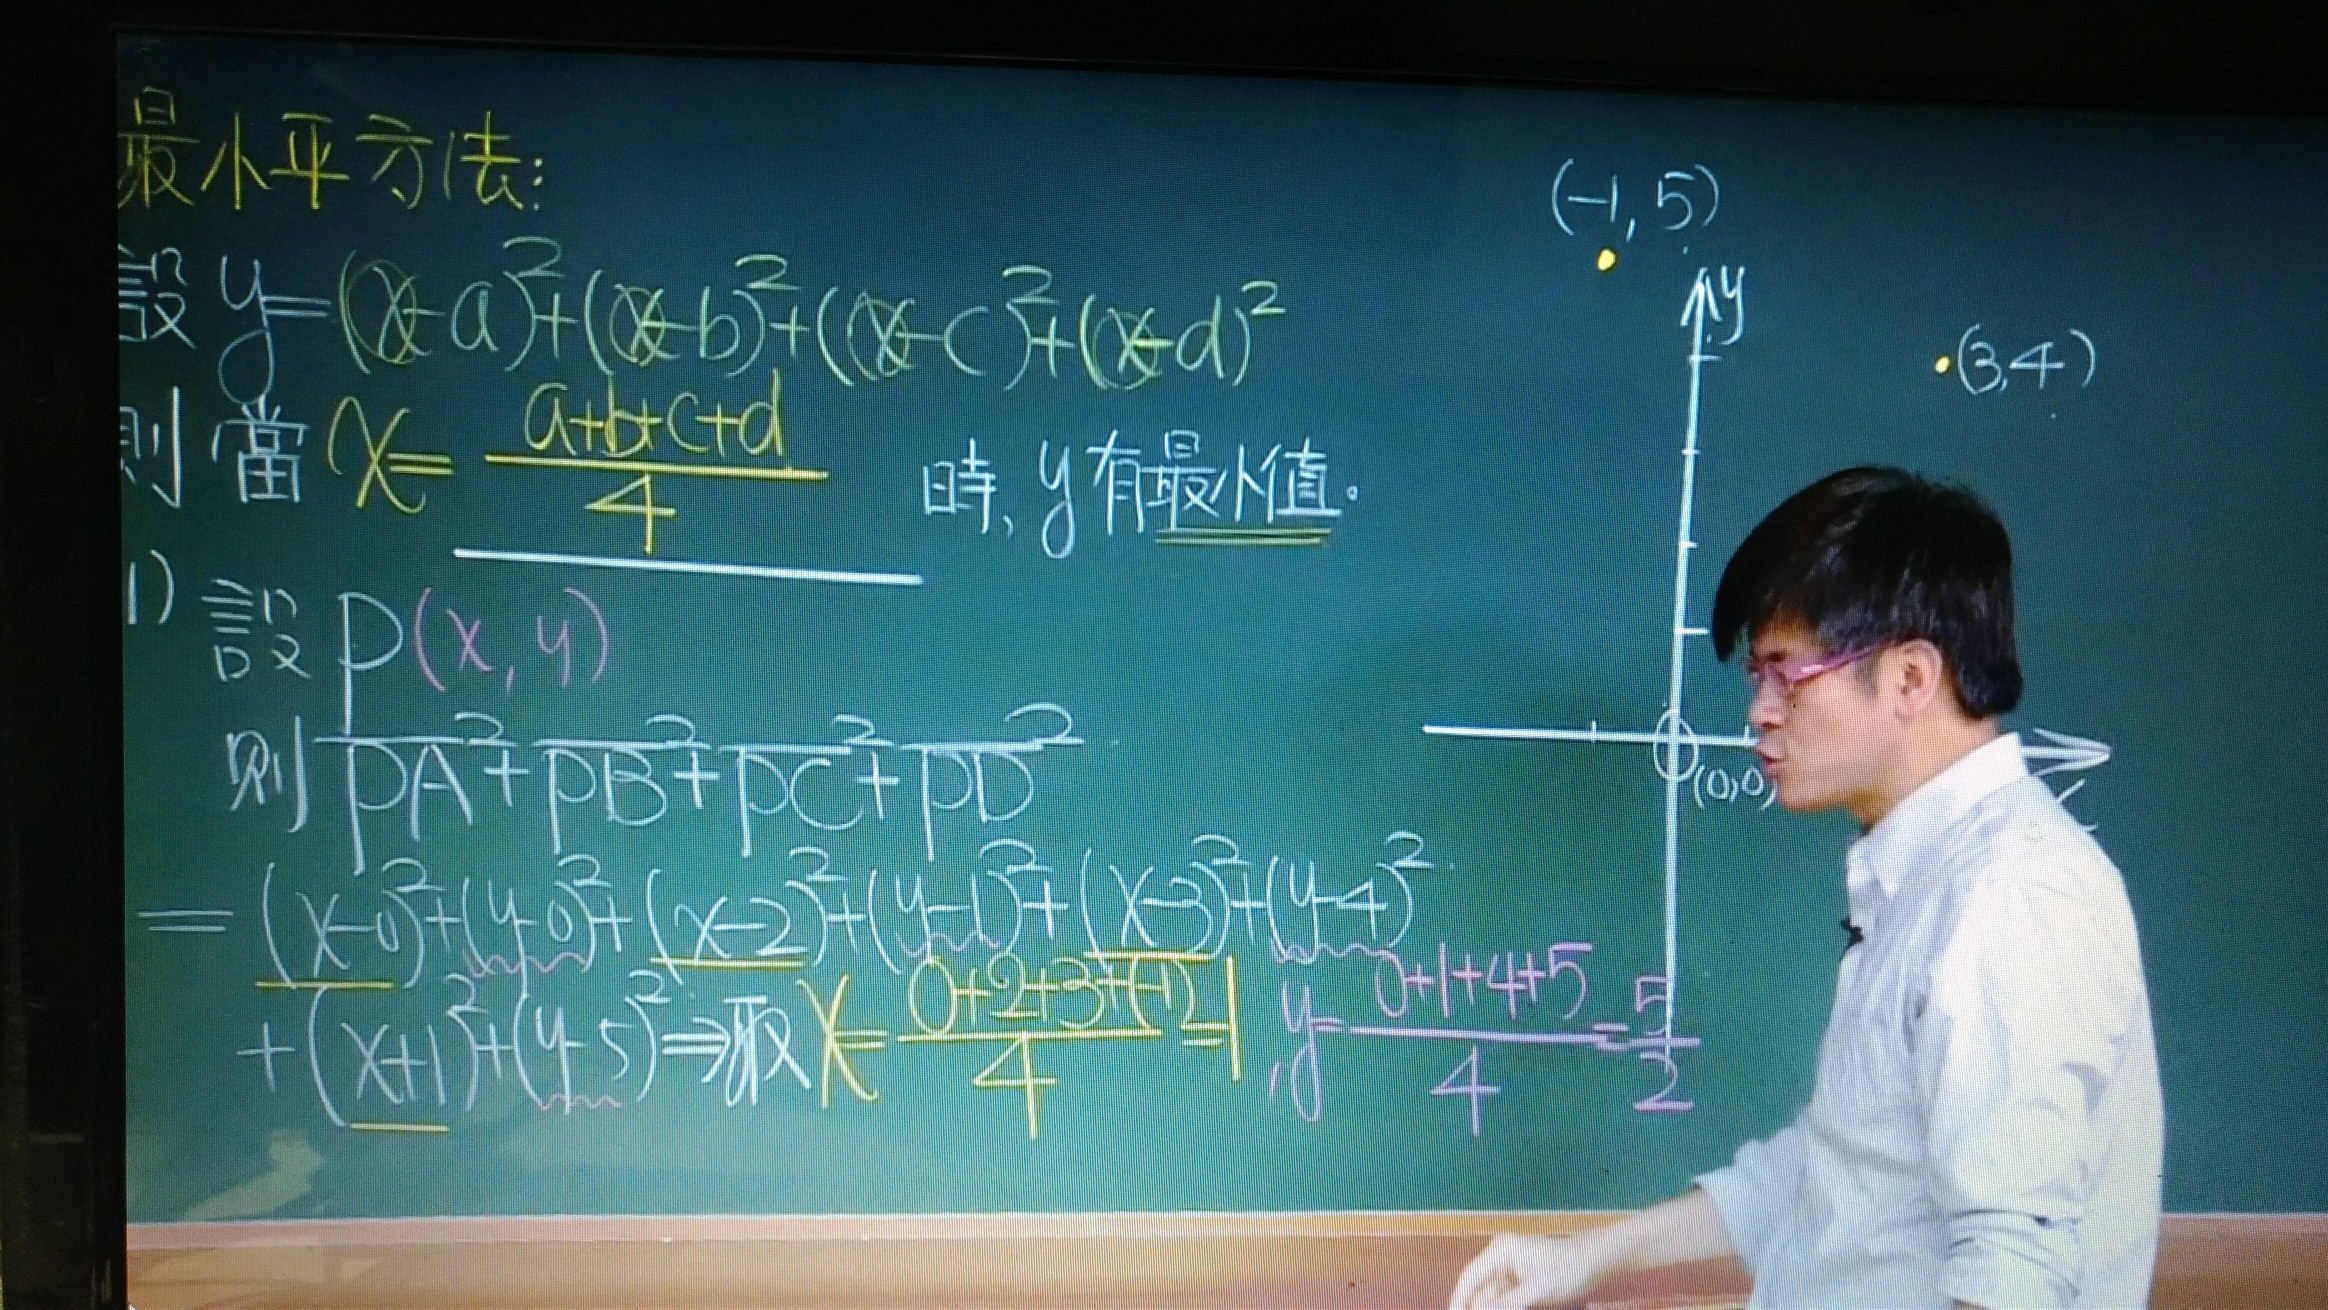 最小平方法:
設 y=(x-a)²+(x-b)²+(x-c)²+(x-d)²
則當 x= (a+b+c+d)/4 時, y有最小值。
1) 設 P(x, y)
則 PA²+PB²+PC²+PD²
= (x-0)²+(y-0)²+(x-2)²+(y-1)²+(x-3)²+(y-4)²
+(x+1)²+(y-5)² ⇒取 x= (0+2+3+(-1))/4 =1, y= (0+1+4+5)/4 = 5/2
(-1, 5)
y
(3,4)
(0,0)